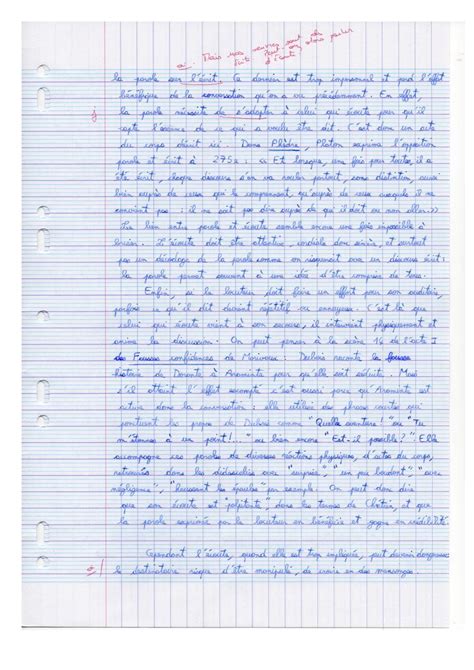 oui. Mais ces œuvres sont de
fait d'écrit
la parole sur l'écrit. Ce dernier est trop impersonnel et perd l'effet
bénéfique de la conversation qu'on a vu précédemment. En effet,
la parole nécessite de s'adapter à celui qui écoute pour qu'il
capte l'essence de ce qui a voulu être dit. C'est donc un acte
du corps décrit ici. Dans Phèdre, Platon exprime l'opposition
parole et écrit à 275e : « Et lorsque, une fois pour toutes, il a
été écrit, chaque discours s'en va rouler partout, sans distinction, aussi
bien auprès de ceux qui le comprennent, qu'auprès de ceux auxquels il ne
convient pas : il ne sait pas dire auprès de qui il doit ou non aller. »
Le lien entre parole et écoute semble encore une fois impossible à
briser. L'écoute doit être attentive, et surtout
pas un décodage de la parole comme on risquerait avec un discours écrit :
la parole permet souvent à une idée d'être comprise de tous.
Enfin, si le locuteur doit faire un effort pour son auditoire,
parfois ce qu'il dit devient répétitif ou ennuyeux. C'est là que
celui qui écoute vient à son secours, il intervient physiquement et
anime la discussion. On peut penser à la scène 14 de l'acte I
des Fausses confidences de Marivaux : Dubois raconte la fausse
histoire de Dorante à Araminte pour qu'elle soit séduite. Mais
s'il atteint l'effet escompté c'est aussi parce qu'Araminte est
actrice dans la conversation : elle utilise des phrases courtes qui
ponctuent les propos de Dubois comme "Quelle aventure !" ou "Tu
m'étonnes à un point !..." ou bien encore "Est-il possible ?" Elle
accompagne ces paroles de diverses réactions physiques, d'actes du corps,
retrouvés dans les didascalies avec "surprise", "un peu boudant", "avec
négligence", "haussant les épaules" par exemple. On peut donc dire
que son écoute est "pétitante", dans les termes de Chrétien, et que
la parole exprimée par le locuteur en bénéficie et gagne en crédibilité.
Cependant l'écoute, quand elle est trop impliquée, peut devenir dangereuse :
le destinataire risque d'être manipulé, de croire en des mensonges.